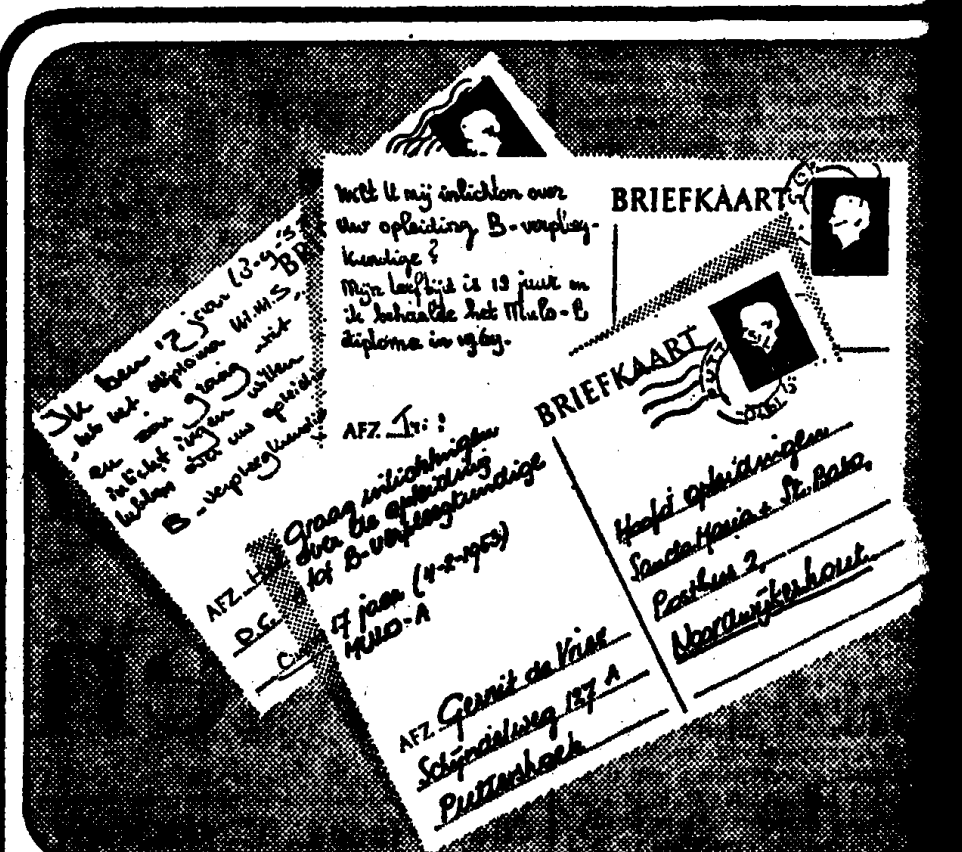 Ik ben 17 jaar
heb het diploma M.M.S.
en zou graag wat
inlichtingen willen
hebben over uw opleid.
B-verpleegkund
AFZ.
D.C.
BR
Wilt U mij inlichten over
Uw opleiding B-verpleeg-
kundige?
Mijn leeftijd is 19 jaar en
ik behaalde het Mulo-B
diploma in 1964.
AFZ.
BRIEFKAART
Graag inlichtingen
over de opleiding
tot B-verpleegkundige
17 jaar (4-2-1953)
MULO-A
AFZ. Gerrit de Vrise
Schijndelweg 137 A
Puttershoek
BRIEFKAART
Hoofd opleidingen
Sancta Maria + St. Bavo,
Postbus 2,
Noordwijkerhout.